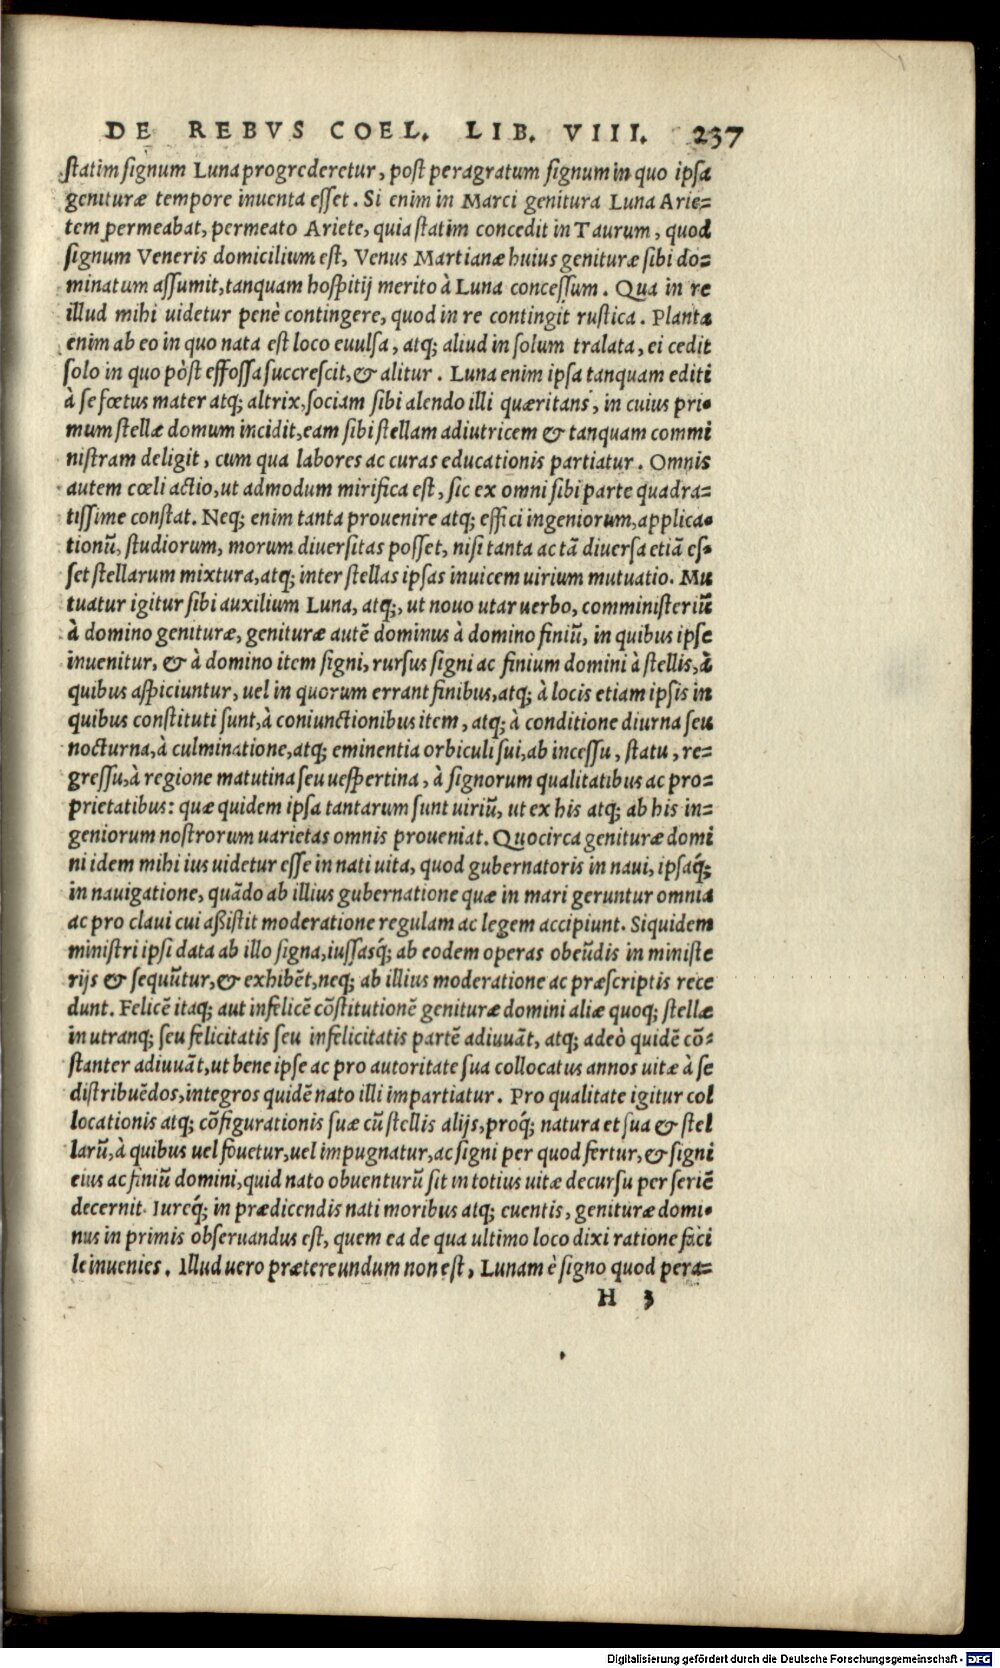 DE REBVS COEL. LIB. VIII. 237
statim signum Luna progrederetur, post peragratum signum in quo ipsa
genituræ tempore inuenta esset. Si enim in Marci genitura Luna Arie=
tem permeabat, permeato Ariete, quia statim concedit in Taurum, quod
signum Veneris domicilium est, Venus Martianæ huius genituræ sibi do=
minatum assumit, tanquam hospitij merito à Luna concessum. Qua in re
illud mihi uidetur penè contingere, quod in re contingit rustica. Planta
enim ab eo in quo nata est loco euulsa, atq; aliud in solum tralata, ei cedit
solo in quo pòst effossa succrescit, & alitur. Luna enim ipsa tanquam editi
à se fœtus mater atq; altrix, sociam sibi alendo illi quæritans, in cuius pri=
mum stellæ domum incidit, eam sibi stellam adiutricem & tanquam commi
nistram deligit, cum qua labores ac curas educationis partiatur. Omnis
autem cœli actio, ut admodum mirifica est, sic ex omni sibi parte quadra=
tissime constat. Neq; enim tanta prouenire atq; effici ingeniorum, applica=
tionũ, studiorum, morum diuersitas posset, nisi tanta ac tã diuersa etiã es=
set stellarum mixtura, atq; inter stellas ipsas inuicem uirium mutuatio. Mu
tuatur igitur sibi auxilium Luna, atq;, ut nouo utar uerbo, comministeriũ
à domino genituræ, genituræ autẽ dominus à domino finiũ, in quibus ipse
inuenitur, & à domino item signi, rursus signi ac finium domini à stellis, à
quibus aspiciuntur, uel in quorum errant finibus, atq; à locis etiam ipsis in
quibus constituti sunt, à coniunctionibus item, atq; à conditione diurna seu
nocturna, à culminatione, atq; eminentia orbiculi sui, ab incessu, statu, re=
gressu, à regione matutina seu uespertina, à signorum qualitatibus ac pro=
prietatibus: quæ quidem ipsa tantarum sunt uiriũ, ut ex his atq; ab his in=
geniorum nostrorum uarietas omnis proueniat. Quocirca genituræ domi
ni idem mihi ius uidetur esse in nati uita, quod gubernatoris in naui, ipsaq́;
in nauigatione, quãdo ab illius gubernatione quæ in mari geruntur omnia
ac pro claui cui aßistit moderatione regulam ac legem accipiunt. Siquidem
ministri ipsi data ab illo signa, iussasq́; ab eodem operas obeũdis in ministe
rijs & sequũtur, & exhibẽt, neq; ab illius moderatione ac præscriptis rece
dunt. Felicẽ itaq; aut infelicẽ cõstitutionẽ genituræ domini aliæ quoq; stellæ
in utranq; seu felicitatis seu infelicitatis partẽ adiuuãt, atq; adeò quidẽ cõ=
stanter adiuuãt, ut bene ipse ac pro autoritate sua collocatus annos uitæ à se
distribuẽdos, integros quidẽ nato illi impartiatur. Pro qualitate igitur col
locationis atq; cõfigurationis suæ cũ stellis alijs, proq́; natura et sua & stel
larũ, à quibus uel fouetur, uel impugnatur, ac signi per quod fertur, & signi
eius ac finiũ domini, quid nato obuenturũ sit in totius uitæ decursu per seriẽ
decernit. Iureq́; in prædicendis nati moribus atq; euentis, genituræ domi=
nus in primis obseruandus est, quem ea de qua ultimo loco dixi ratione faci
le inuenies. Illud uero prætereundum non est, Lunam è signo quod pera=
H 3
Digitalisierung gefördert durch die Deutsche Forschungsgemeinschaft - DFG